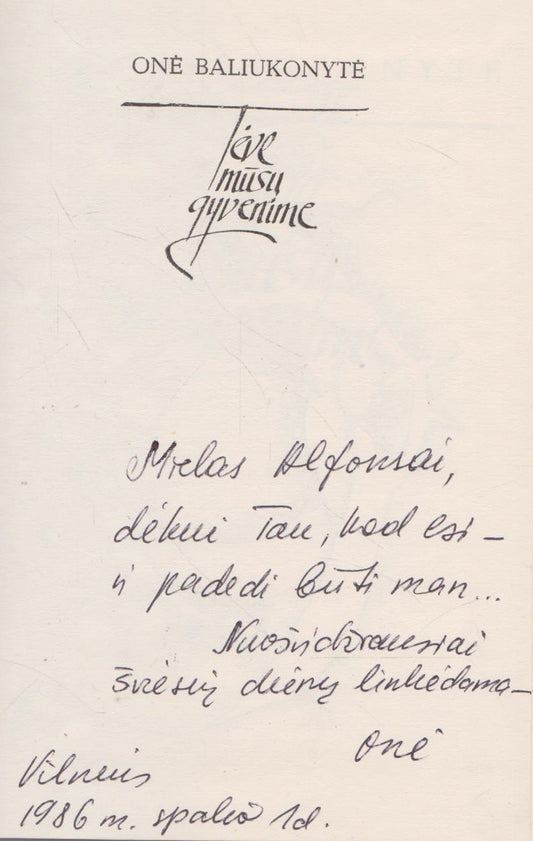 ONĖ BALIUKONYTĖ
Tėve
mūsų
gyvenime
Mielas Alfonsai,
dėkui Tau, kad esi –
ir padedi būti man...
Nuoširdžiausiai
šviesių dienų linkėdama –
Onė
Vilnius
1986 m. spalio 1d.